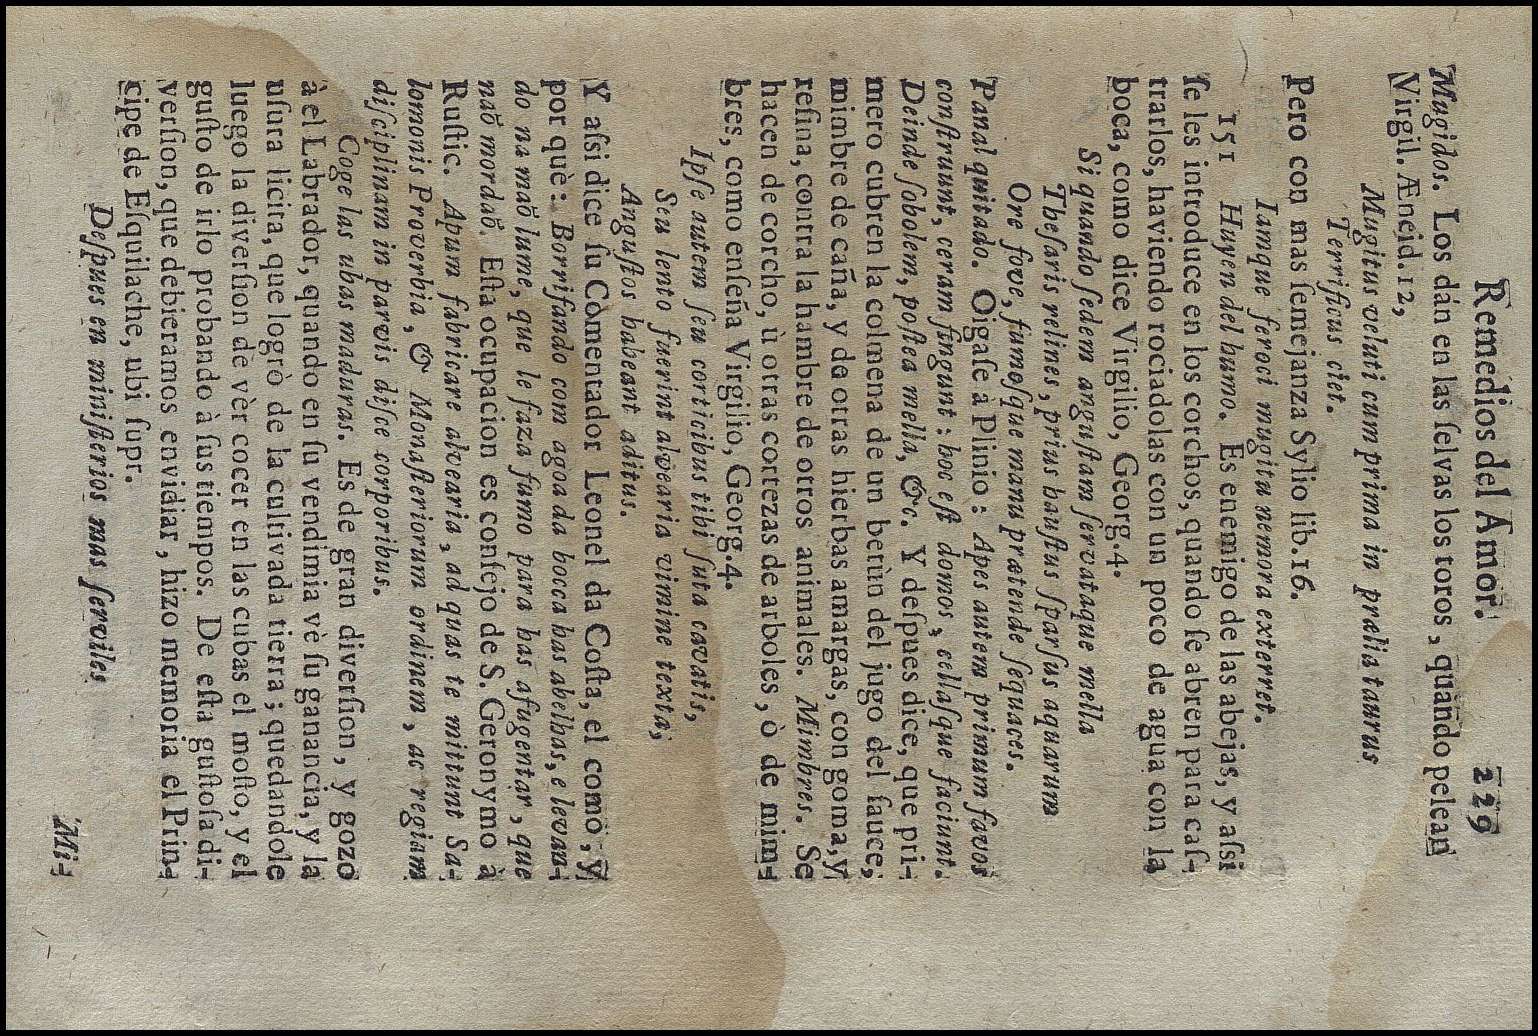 Remedios del Amor. 229
Mugidos. Los dán en las ſelvas los toros, quando pelean
Virgil. Æneid. 12,
Mugitus veluti cum prima in prælia taurus
Terrificus ciet.
Pero con mas ſemejanza Sylio lib. 16.
Iamque feroci mugitu nemora exterret.
151 Huyen del humo. Es enemigo de las abejas, y aſsi
ſe les introduce en los corchos, quando ſe abren para caſ-
trarlos, haviendo rociadolas con un poco de agua con la
boca, como dice Virgilio, Georg. 4.
Si quando ſedem anguſtam ſervataque mella
Theſaris relines, prius hauſtus ſparſus aquarum
Ore fove, fumoſque manu prætende ſequaces.
Panal quitado. Oigaſe à Plinio: Apes autem primum favos
conſtruunt, ceram fingunt: hoc eſt domos, cellaſque faciunt.
Deinde ſobolem, poſtea mella, &c. Y deſpues dice, que pri-
mero cubren la colmena de un betùn del jugo del ſauce,
mimbre de caña, y de otras hierbas amargas, con goma, y
reſina, contra la hambre de otros animales. Mimbres. Se
hacen de corcho, ù otras cortezas de arboles, ò de mim-
bres, como enſeña Virgilio, Georg. 4.
Ipſe autem ſeu corticibus tibi ſuta cavatis,
Seu lento fuerint alvearia vimine texta;
Anguſtos habeant aditus.
Y aſsi dice ſu Comentador Leonel da Coſta, el como, y
por què: Borrifando com agoa da bocca has abelhas, e levan-
do na maõ lume, que le faza fumo para has afugentar, que
naõ mordaõ. Eſta ocupacion es conſejo de S. Geronymo à
Ruſtic. Apum fabricare alvearia, ad quas te mittunt Sa-
lomonis Proverbia, & Monaſteriorum ordinem, ac regiam
diſciplinam in parvis diſce corporibus.
Coge las ubas maduras. Es de gran diverſion, y gozo
à el Labrador, quando en ſu vendimia vè ſu ganancia, y la
uſura licita, que logrò de la cultivada tierra; quedandole
luego la diverſion de vèr cocer en las cubas el moſto, y el
guſto de irlo probando à ſus tiempos. De eſta guſtoſa di-
verſion, que debieramos envidiar, hizo memoria el Prin-
cipe de Eſquilache, ubi ſupr.
Deſpues en miniſterios mas ſerviles
Mi-